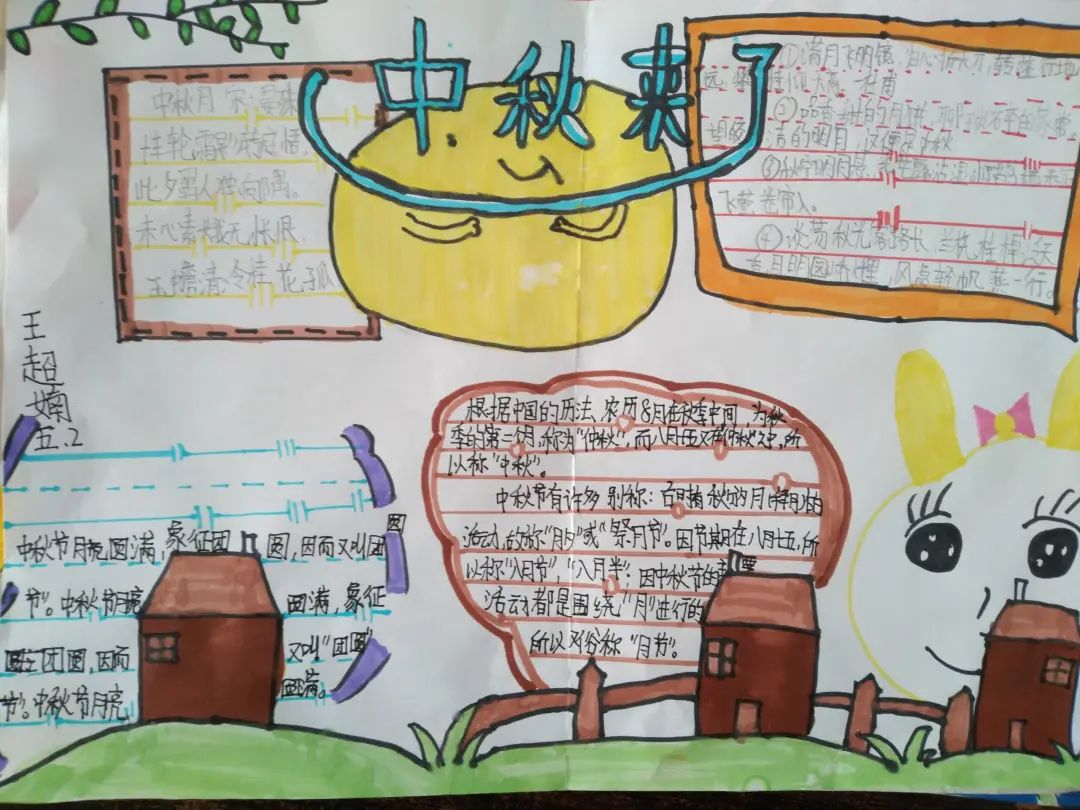 中秋来了
中秋月 宋·晏殊
十轮霜影转庭梧，
此夕羁人独向隅。
未必素娥无怅恨，
玉蟾清冷桂花孤
①满月飞明镜，归心折大刀，转蓬行地
远，攀桂仰天高。杜甫
②品香甜的月饼，
洁的明月，这便是中秋
③
飞燕
④淡荡秋光客路长，兰桡桂棹
月明园峤里，风点轻帆燕一行。
王超婻
五.2
中秋节月亮圆满，象征团圆，因而又叫团圆
节"。中秋节月亮圆满，象征
团圆，因而又叫"团圆
节"。中秋节月亮圆满。
根据中国的历法，农历8月在秋季中间，为秋
季的第二个月，称为"仲秋"，而八月十五又在"仲秋"之中，所
以称"中秋"。
中秋节有许多别称：
活动，故称"月夕"或"祭月节"。因节期在八月十五，所
以称"八月节"，"八月半"；因中秋节的主要
活动都是围绕，"月"进行的
所以又俗称"月节"。